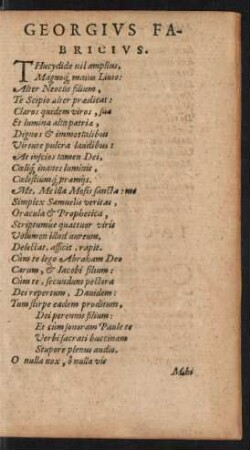 GEORGIVS FA-
BRICIVS.
THucydide nil amplius,
Magnoq́ maius Liuio:
Alter Neoclis filium,
Te Scipio alter præditat:
Claros quidem viros, suæ
Et lumina alta patriæ,
Dignos & immortalibus
Virtute pulcra laudibus:
At inscios tamen Dei,
Cœliq́ inanes luminis,
Cœlestiumq́ præmijs.
Me, Me illa Mosis sancta: me
Simplex Samuelis veritas,
Oracula & Prophetica,
Scriptumue quattuor viris
Volumen illud aureum,
Delectat, afficit, rapit.
Cùm te lego Abraham Deo
Carum, & Iacobi filium:
Cùm te, secundum pectora
Dei repertum, Dauidem:
Tum stirpe eadem proditum,
Dei perennis filium:
Et cùm sonoram Paule te
Verbi sacrati buccinam
Stupore plenus audio.
O nulla nox, ô nulla vis
Mihi